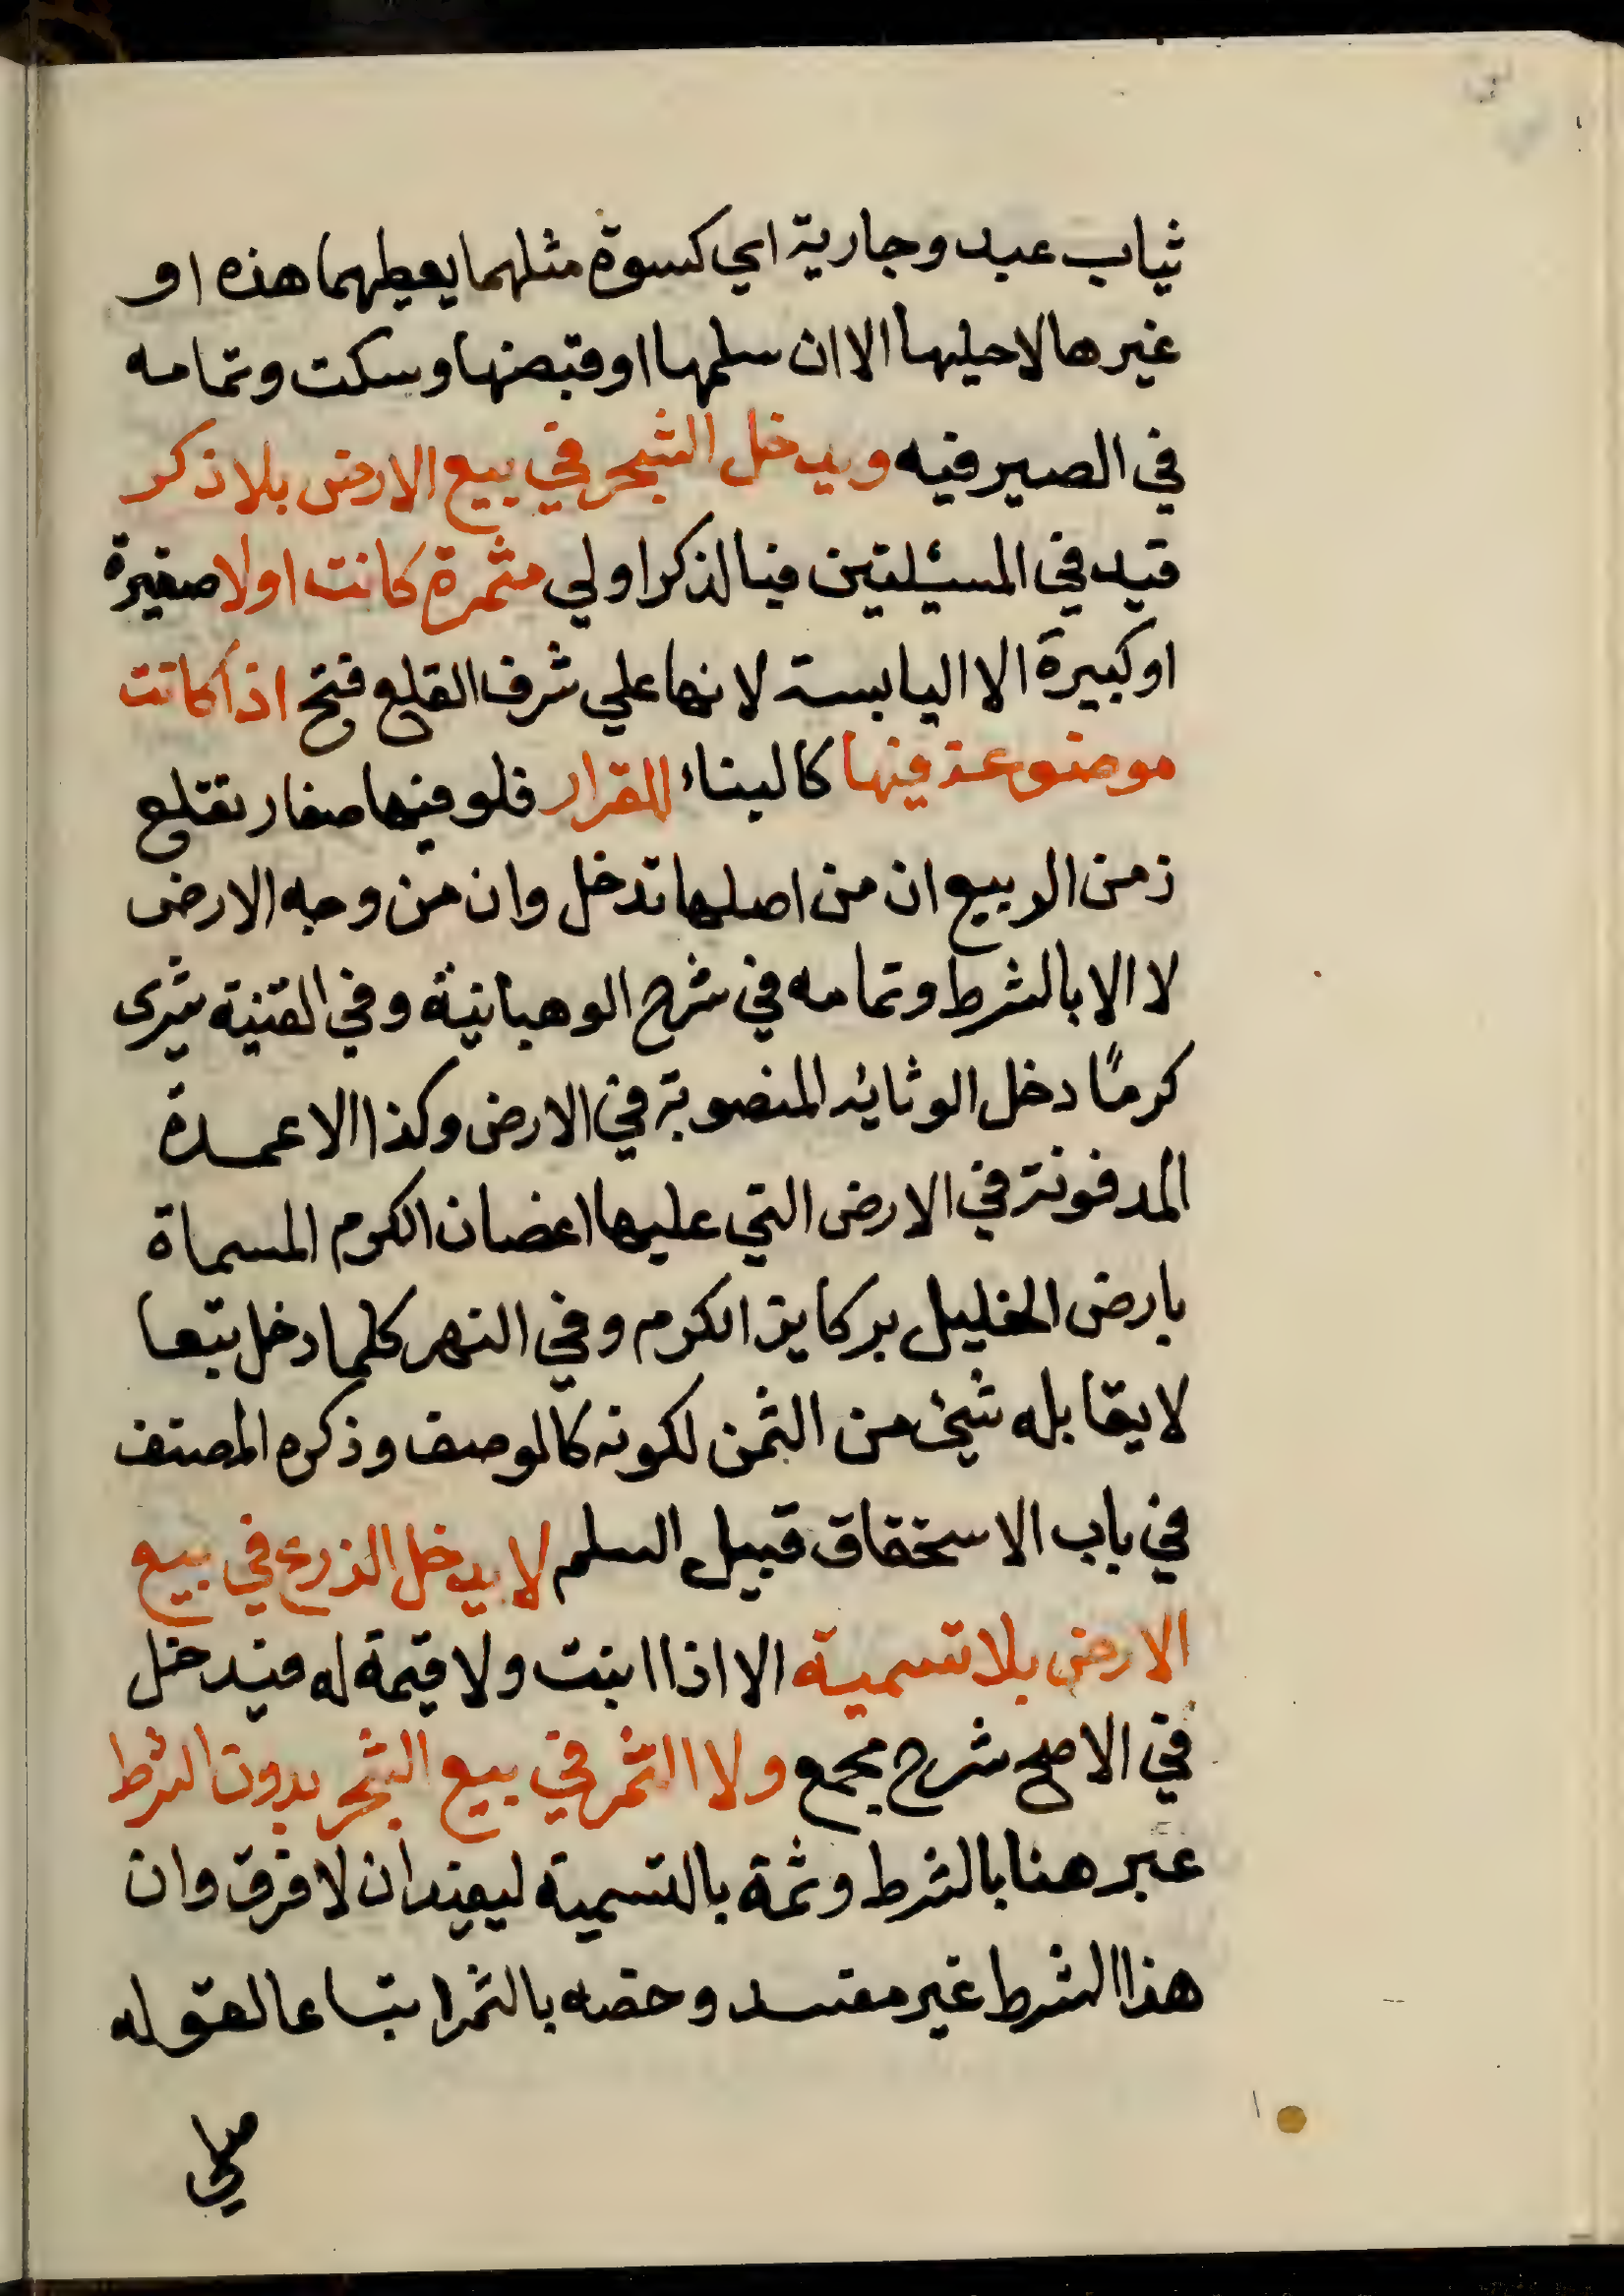 ثياب عبد وجارية اي كسوة مثلهما يعطيهما هذه او
غيرها لا حليها الا ان سلمها او قبضها وسكت وتمامه
في الصيرفيه ويدخل الشجر في بيع الارض بلا ذكر
قيد في المسئلتين فبالذكر اولي مثمرة كانت اولا صغيرة
او كبيرة الا اليابسة لانها علي شرف القلع فتح اذا كانت
موضوعة فيها كالبناء للقرار فلو فيها صغار تقلع
زمن الربيع ان من اصلها تدخل وان من وجه الارض
لا الا بالشرط وتمامه في شرح الوهبانية وفي القنية شرى
كرمًا دخل الوثايد المنصوبة في الارض وكذا الاعمدة
المدفونة في الارض التي عليها اغضان الكرم المسماة
بارض الخليل بركايز الكرم وفي النهر كلما دخل تبعا
لا يقابله شيئ من الثمن لكونه كالوصف وذكره المصنف
في باب الاستحقاق قبيل السلم لا يدخل الزرع في بيع
الارض بلا تسمية الا اذا انبت ولا قيمة له فيدخل
في الاصح شرح مجمع ولا الثمر في بيع الشجر بدون الشرط
عبر هنا بالشرط وثمة بالتسمية ليفيد ان لا فرق وان
هذا الشرط غير مفسد وخصه بالثمر اتباعا لقوله
صلي